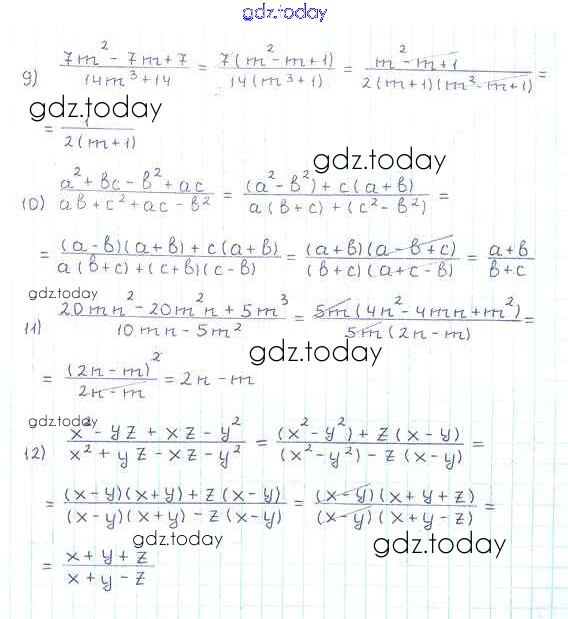 gdz.today
9) (7m² - 7m + 7)/(14m³ + 14) = 7(m² - m + 1)/14(m³ + 1) = (m² - m + 1)/2(m+1)(m² - m + 1) =
gdz.today
= 1/2(m+1)
gdz.today
10) (a² + bc - b² + ac)/(ab + c² + ac - b²) = ((a² - b²) + c(a + b))/(a(b+c) + (c² - b²)) =
= ((a-b)(a+b) + c(a+b))/(a(b+c) + (c+b)(c-b)) = (a+b)(a-b+c)/(b+c)(a+c-b) = (a+b)/(b+c)
gdz.today
11) (20mn² - 20m²n + 5m³)/(10mn - 5m²) = 5m(4n² - 4mn + m²)/5m(2n - m) =
gdz.today
= (2n - m)²/(2n - m) = 2n - m
gdz.today
12) (x² - yz + xz - y²)/(x² + yz - xz - y²) = ((x² - y²) + z(x - y))/((x² - y²) - z(x - y)) =
= ((x-y)(x+y) + z(x-y))/((x-y)(x+y) - z(x-y)) = (x-y)(x+y+z)/(x-y)(x+y-z) =
gdz.today
gdz.today
= (x+y+z)/(x+y-z)